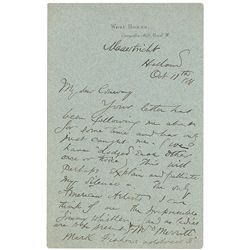 West House,
Campden Hill Road, W.
Maestricht
Holland
Oct 11th
My dear Conway
Your letter has
been following me about
for some time and has only
just caught me. (we
have dodged each other
once or twice) This will
perhaps explain and palliate
my silence. The only
American Artists I can
think of are the impossible
Jimmy Whistler, and as ladies
are also present, Mrs Merritt
Mark Fisher's address is